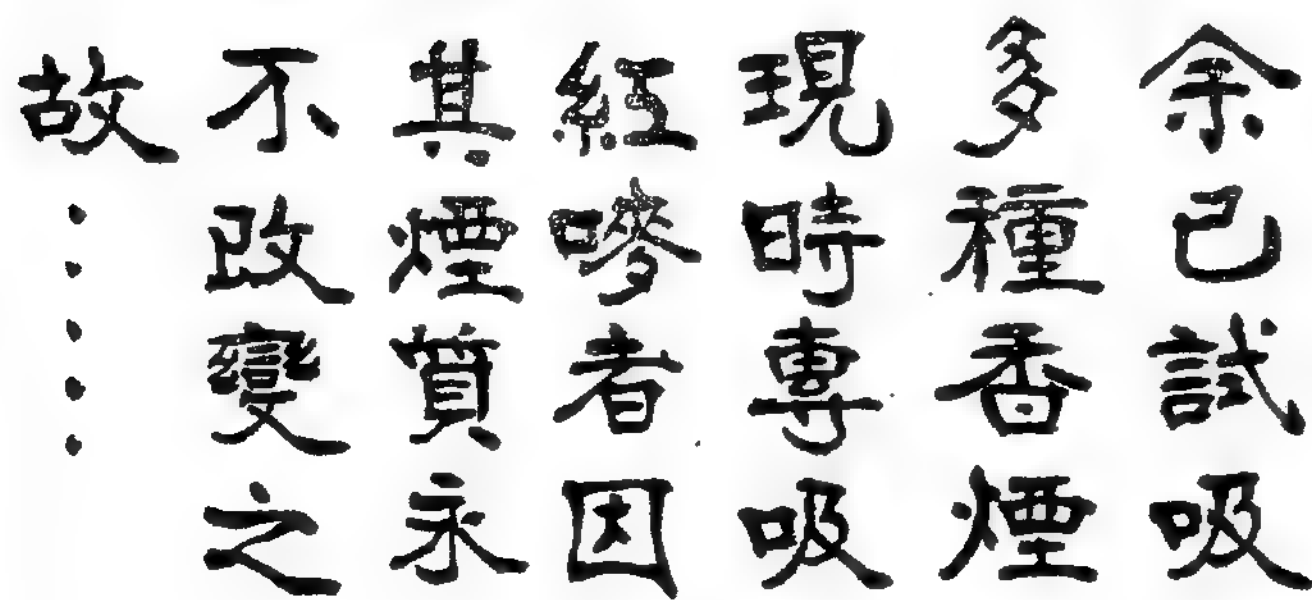 余已試吸
多種香煙
現時專吸
紅嘜者因
其煙質永
不改變之
故·····